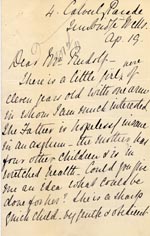 4. Calverley Parade
Tunbridge Wells.
Ap. 19.
Dear Mr. Rudolf -
There is a little girl, of
eleven years old with one arm
in whom I am much interested
The Father is hopelessly insane
in an asylum - the mother has
four other children & is in
wretched health - Could you give
me an idea what could be
done for her? She is a sharp
quick child. & obedient